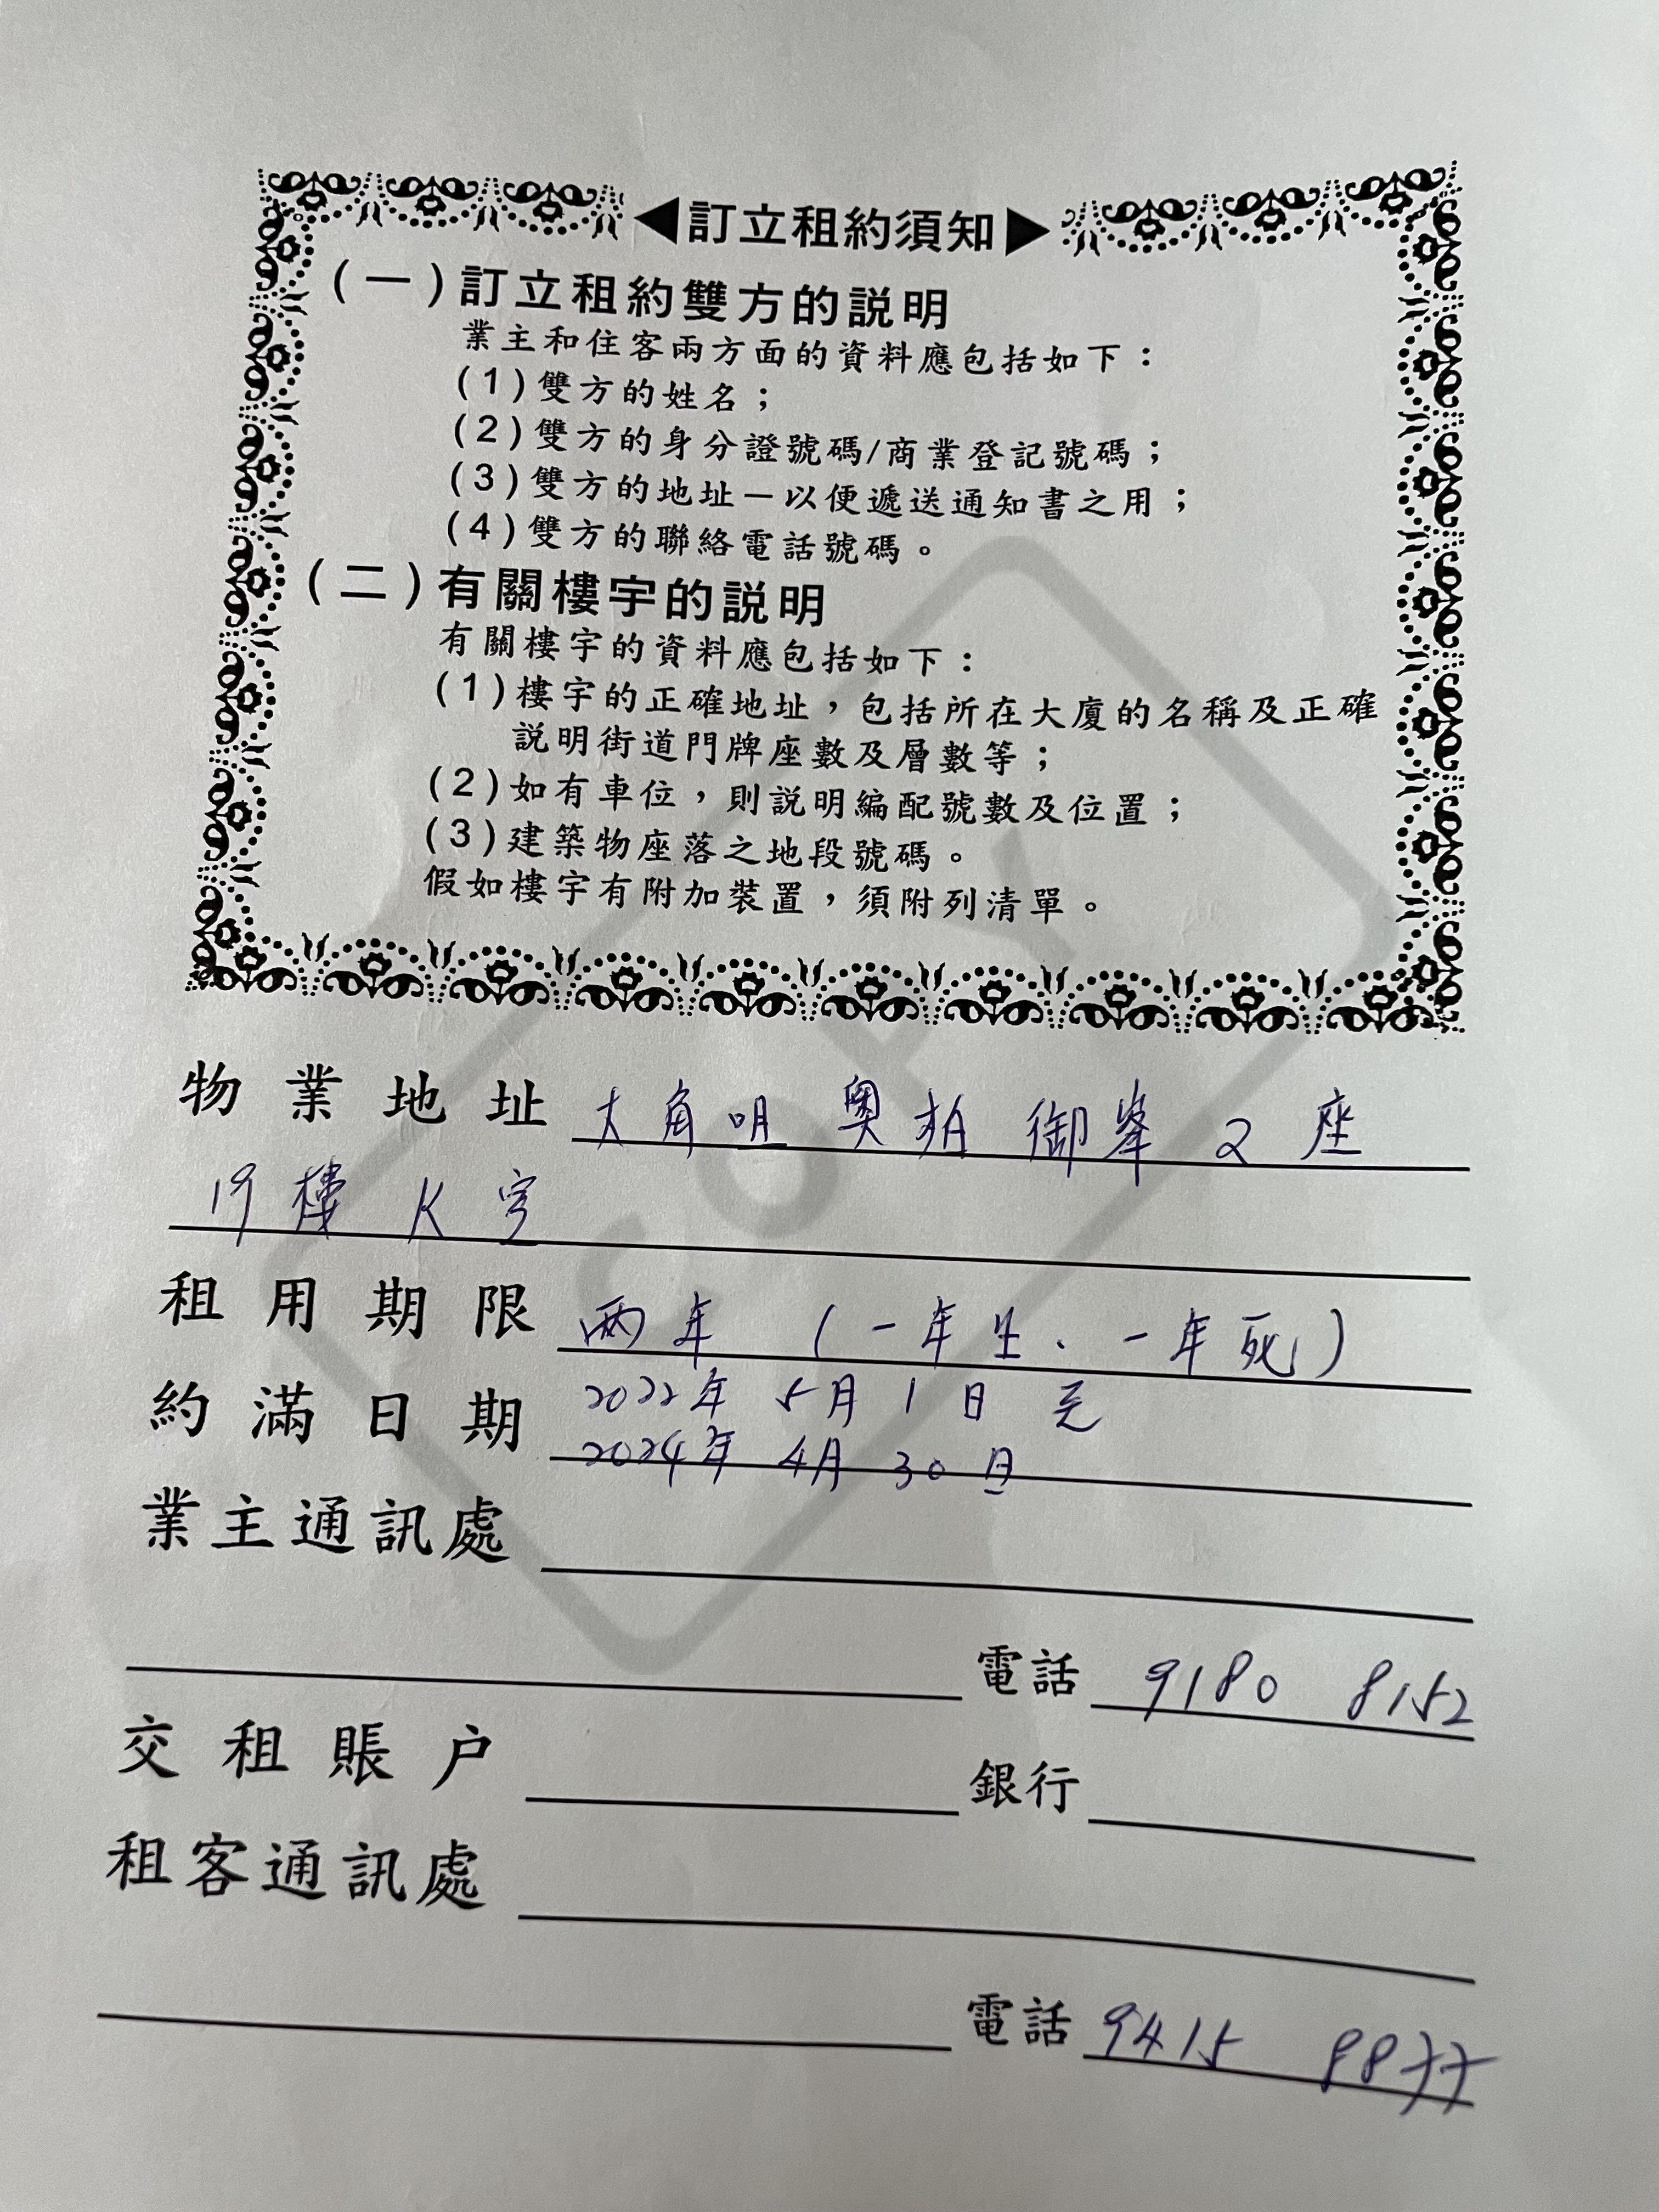 ◀訂立租約須知▶
(一)訂立租約雙方的説明
業主和住客兩方面的資料應包括如下：
(1)雙方的姓名；
(2)雙方的身分證號碼/商業登記號碼；
(3)雙方的地址－以便遞送通知書之用；
(4)雙方的聯絡電話號碼。
(二)有關樓宇的説明
有關樓宇的資料應包括如下：
(1)樓宇的正確地址，包括所在大廈的名稱及正確
説明街道門牌座數及層數等；
(2)如有車位，則説明編配號數及位置；
(3)建築物座落之地段號碼。
假如樓宇有附加裝置，須附列清單。
COPY
物業地址 大角咀 奧柏 御峯 2 座
19 樓 K 室
租用期限 兩年 (一年生、一年死)
約滿日期 2022年 5月 1日
2024年 4月 30日
業主通訊處
電話 9180 8152
交租賬户 銀行
租客通訊處
電話 9415 8877